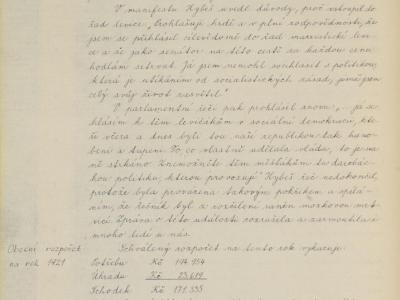 V manifestu Hybeš uvedl důvody, proč vstoupil do
řad levice: „Prohlašuji hrdě a v plné zodpovědnosti, že
jsem se přihlásil cílevědomě do řad marxistické levi-
ce a že jako senátor na této cestě za každou cenu
hodlám setrvat. Já jsem nemohl souhlasit s politikou,
která je utíkáním od socialistických zásad, jimž jsem
celý svůj život zasvětil."
V parlamentní řeči pak prohlásil znovu „... já se
hlásím k těm levičákům v sociální demokracii, kte-
ří včera a dnes byli tou naší republikou tak hano-
beni a tupeni. To, co vlastně udělala vláda, to je na-
ně strháno. Znemožněte těm místůkům tu darebác-
kou politiku, kterou provozují" Hybeš řeč nedokončil,
protože byla provázena takovým pokřikem a spílá-
ním, že řečník byl z rozčilení raněn mozkovou mrt-
vicí. Zpráva o této události rozrušila a zarmoutila i
mnoho lidí u nás.
Obecní rozpočet Schválený rozpočet na tento rok vykazuje:
na rok 1921 Potřebu Kč 194.954
Úhradu Kč 23.619
Schodek Kč 171.335